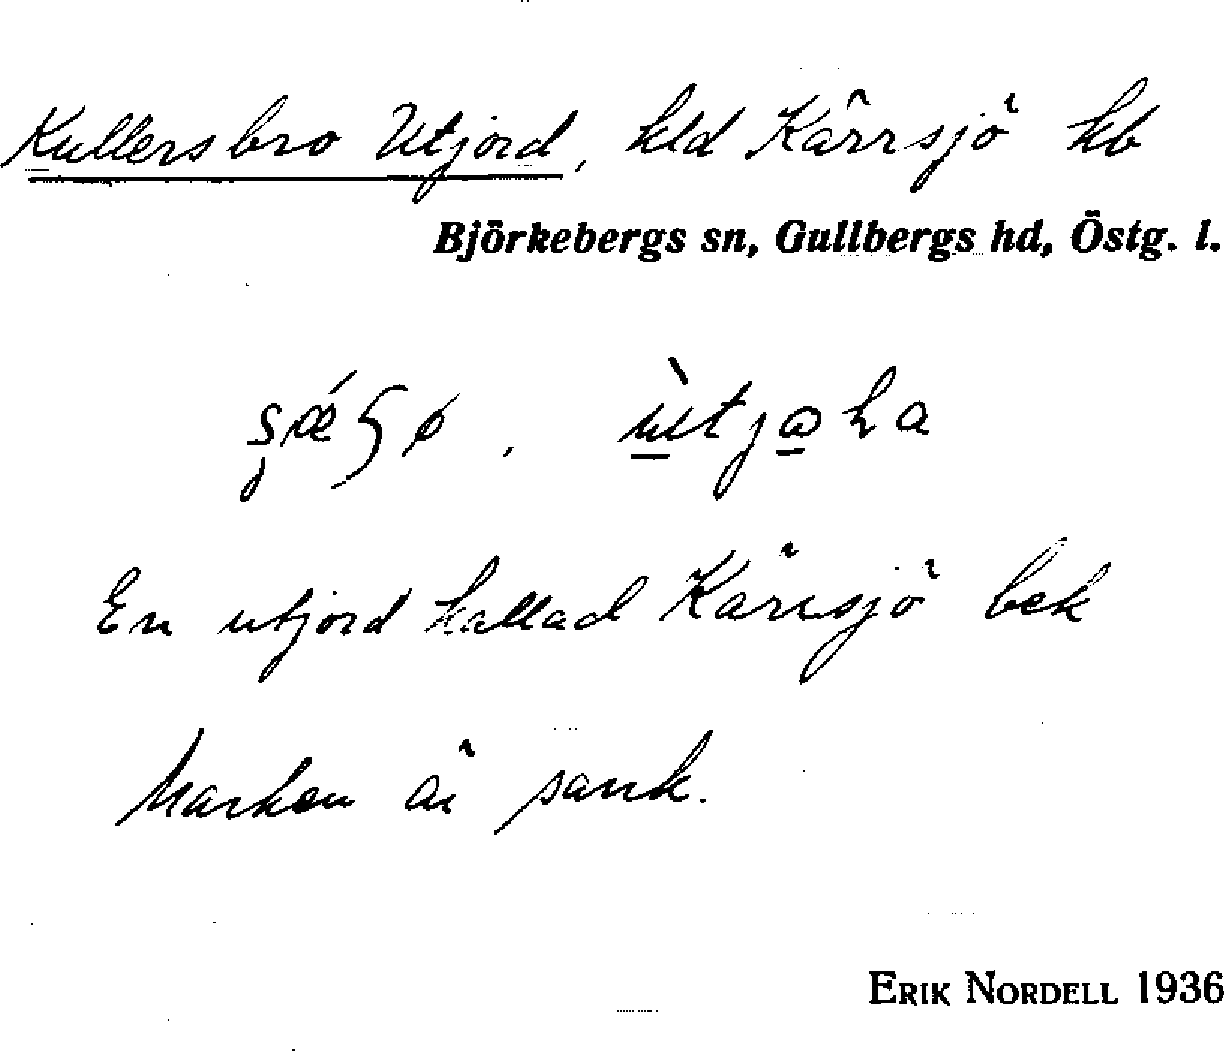 Kullersbro Utjord, kld Kärrsjö hb
Björkebergs sn, Gullbergs hd, Östg. l.
En utjord kallad Kärrsjö bek
Marken är sank.
ERIK NORDELL 1936